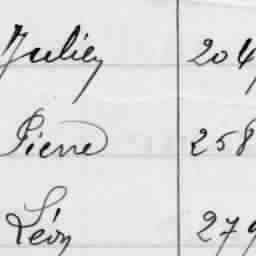 Julien 204
Pierre 258
Léon 279